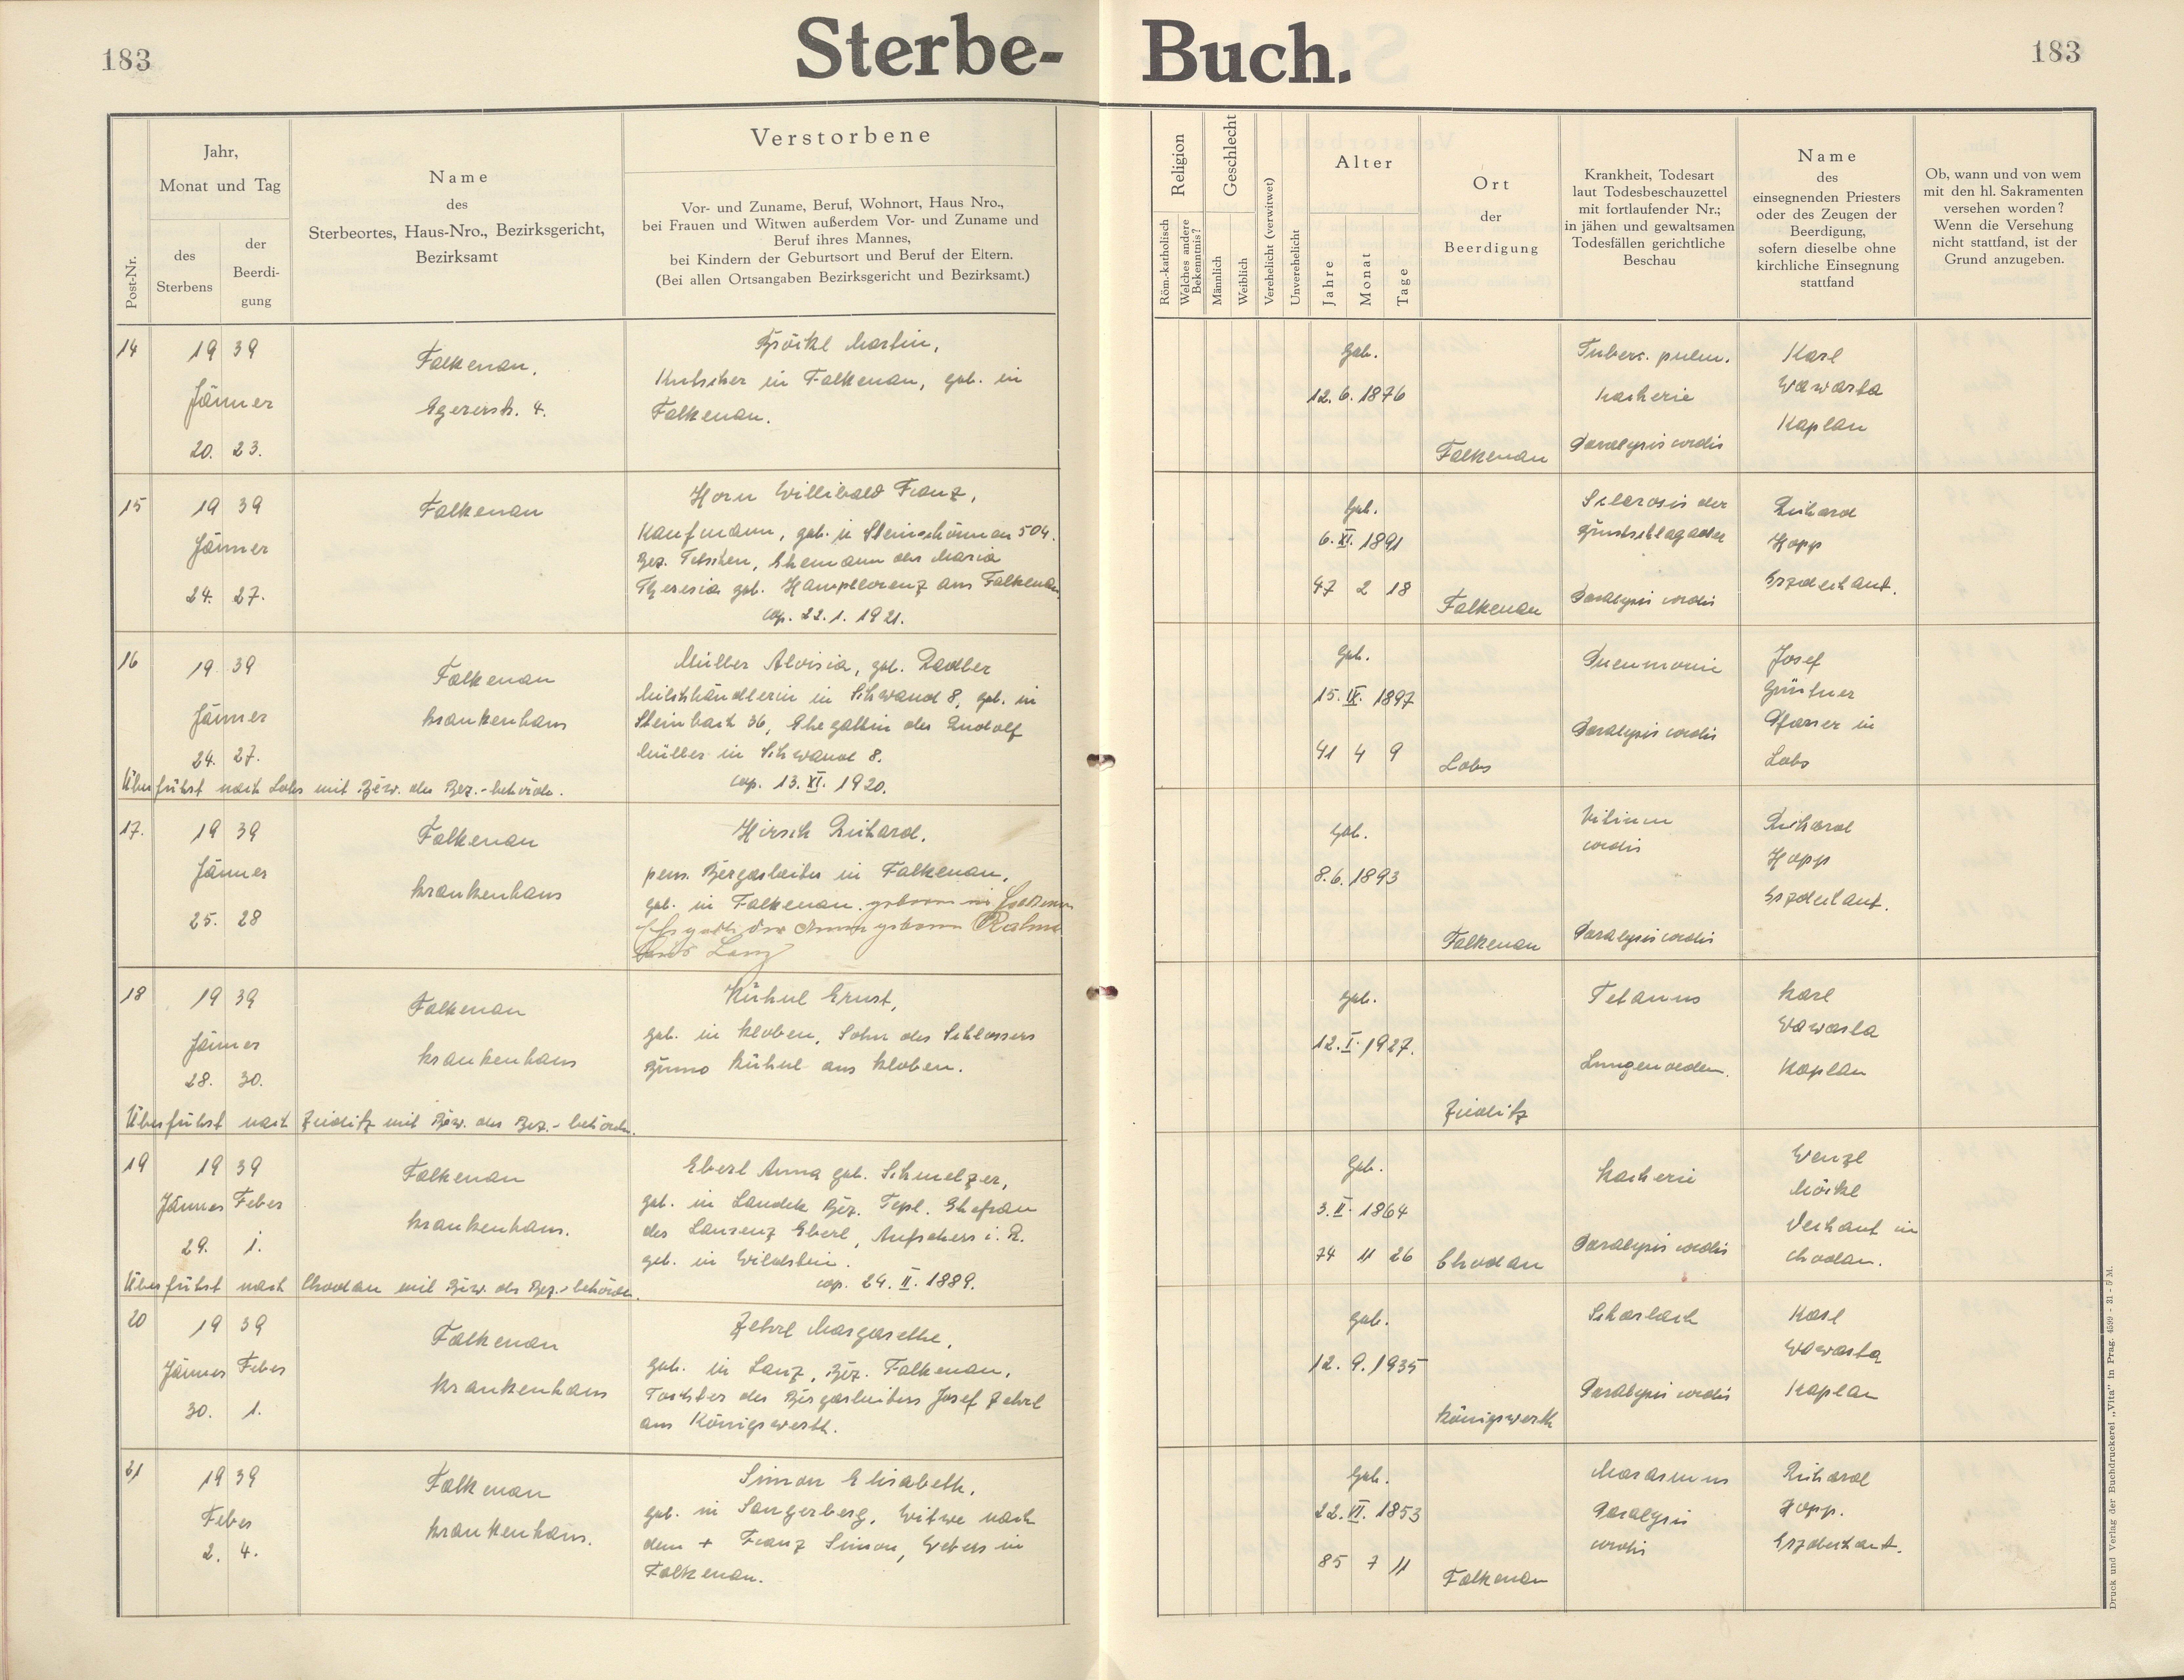 183
Sterbe-Buch.
183
Post-Nr.
Jahr,
Monat und Tag
des
Sterbens
der
Beerdi-
gung
Name
des
Sterbeortes, Haus-Nro., Bezirksgericht,
Bezirksamt
Verstorbene
Vor- und Zuname, Beruf, Wohnort, Haus Nro.,
bei Frauen und Witwen außerdem Vor- und Zuname und
Beruf ihres Mannes,
bei Kindern der Geburtsort und Beruf der Eltern.
(Bei allen Ortsangaben Bezirksgericht und Bezirksamt.)
Religion
Röm.-katholisch
Welches andere
Bekenntnis?
Geschlecht
Männlich
Weiblich
Verehelicht (verwitwet)
Unverehelicht
Alter
Jahre
Monat
Tage
Ort
der
Beerdigung
Krankheit, Todesart
laut Todesbeschauzettel
mit fortlaufender Nr.;
in jähen und gewaltsamen
Todesfällen gerichtliche
Beschau
Name
des
einsegnenden Priesters
oder des Zeugen der
Beerdigung,
sofern dieselbe ohne
kirchliche Einsegnung
stattfand
Ob, wann und von wem
mit den hl. Sakramenten
versehen worden?
Wenn die Versehung
nicht stattfand, ist der
Grund anzugeben.
14
19 39
Jänner
20. 23.
Falkenau,
Egererstr. 4.
Martin,
Kutscher in Falkenau, geb. in
Falkenau.
Geb.
12. 6. 1876
Falkenau
Tuberc. pulm.
Kacherie
Paralysis cordis
Karl
Wawarta
Kaplan
15
19 39
Jänner
24. 27.
Falkenau
Horn Willibald Franz,
Kaufmann, geb. in Steinschönau 504.
Bez. Tetschen, Ehemann der Maria
Theresia geb. Hampllorenz aus Falkenau
cop. 22. 1. 1921.
Geb.
6. XI. 1891
47 2 18
Falkenau
Sclerosis der
Paralysis cordis
Richard
Hopp
Erzdechant.
16
19 39
Jänner
24. 27.
Falkenau
Krankenhaus
Müller Aloisia, geb. Radler
Milchhändlerin in Schwand 8, geb. in
Steinbach 36, Ehegattin des Rudolf
Müller in Schwand 8.
cop. 13. XI. 1920.
Überführt nach Lobs mit Bew. der Bez.-behörde.
Geb.
15. IX. 1897
41 4 9
Lobs
Pneumonie
Paralysis cordis
Josef
Güntner
Pfarrer in
Lobs
17.
19 39
Jänner
25. 28
Falkenau
Krankenhaus
Hirsch Richard,
pens. Bergarbeiter in Falkenau,
geb. in Falkenau. geboren in
der Anna geborene
Lanz
Geb.
8. 6. 1893
Falkenau
Vitium
cordis
Paralysis cordis
Richard
Hopp
Erzdechant.
18
19 39
Jänner
28. 30.
Falkenau
Krankenhaus
Kühnl Ernst,
geb. in Kloben, Sohn des Schlossers
Bruno Kühnl aus Kloben.
Überführt nach Zieditz mit Bew. der Bez.-behörde.
Geb.
12. I. 1927.
Zieditz
Tetanus
Lungenoedem.
Karl
Wawarta
Kaplan
19
19 39
Jänner Feber
29. 1.
Falkenau
Krankenhaus.
Eberl Anna geb. Schmelzer,
geb. in Landek Bez. Tepl. Ehefrau
des Laurenz Eberl, Aufsehers i. R.
geb. in Wildstein.
cop. 24. II. 1889.
Überführt nach Chodau mit Bew. der Bez.-behörde.
Geb.
3. II. 1864
74 11 26
Chodau
Kacherie
Paralysis cordis
Wenzl
Möckl
Dechant in
Chodau.
20
19 39
Jänner Feber
30. 1.
Falkenau
Krankenhaus
Zehrl Margarethe,
geb. in Lanz, Bez. Falkenau,
Tochter des Bergarbeiters Josef Zehrl
aus Königswerth.
geb.
12. 9. 1935
Königswerth
Scharlach
Paralysis cordis
Karl
Wawarta
Kaplan
21
19 39
Feber
2. 4.
Falkenau
Krankenhaus.
Simon Elisabeth,
geb. in Sangerberg, Witwe nach
dem + Franz Simon, Webers in
Falkenau.
Geb.
22. VI. 1853
85 7 11
Falkenau
Marasmus
Paralysis
cordis
Richard
Hopp.
Erzdechant.
Druck und Verlag der Buchdruckerei „Vita" in Prag. 4599 - 31 - 5 M.